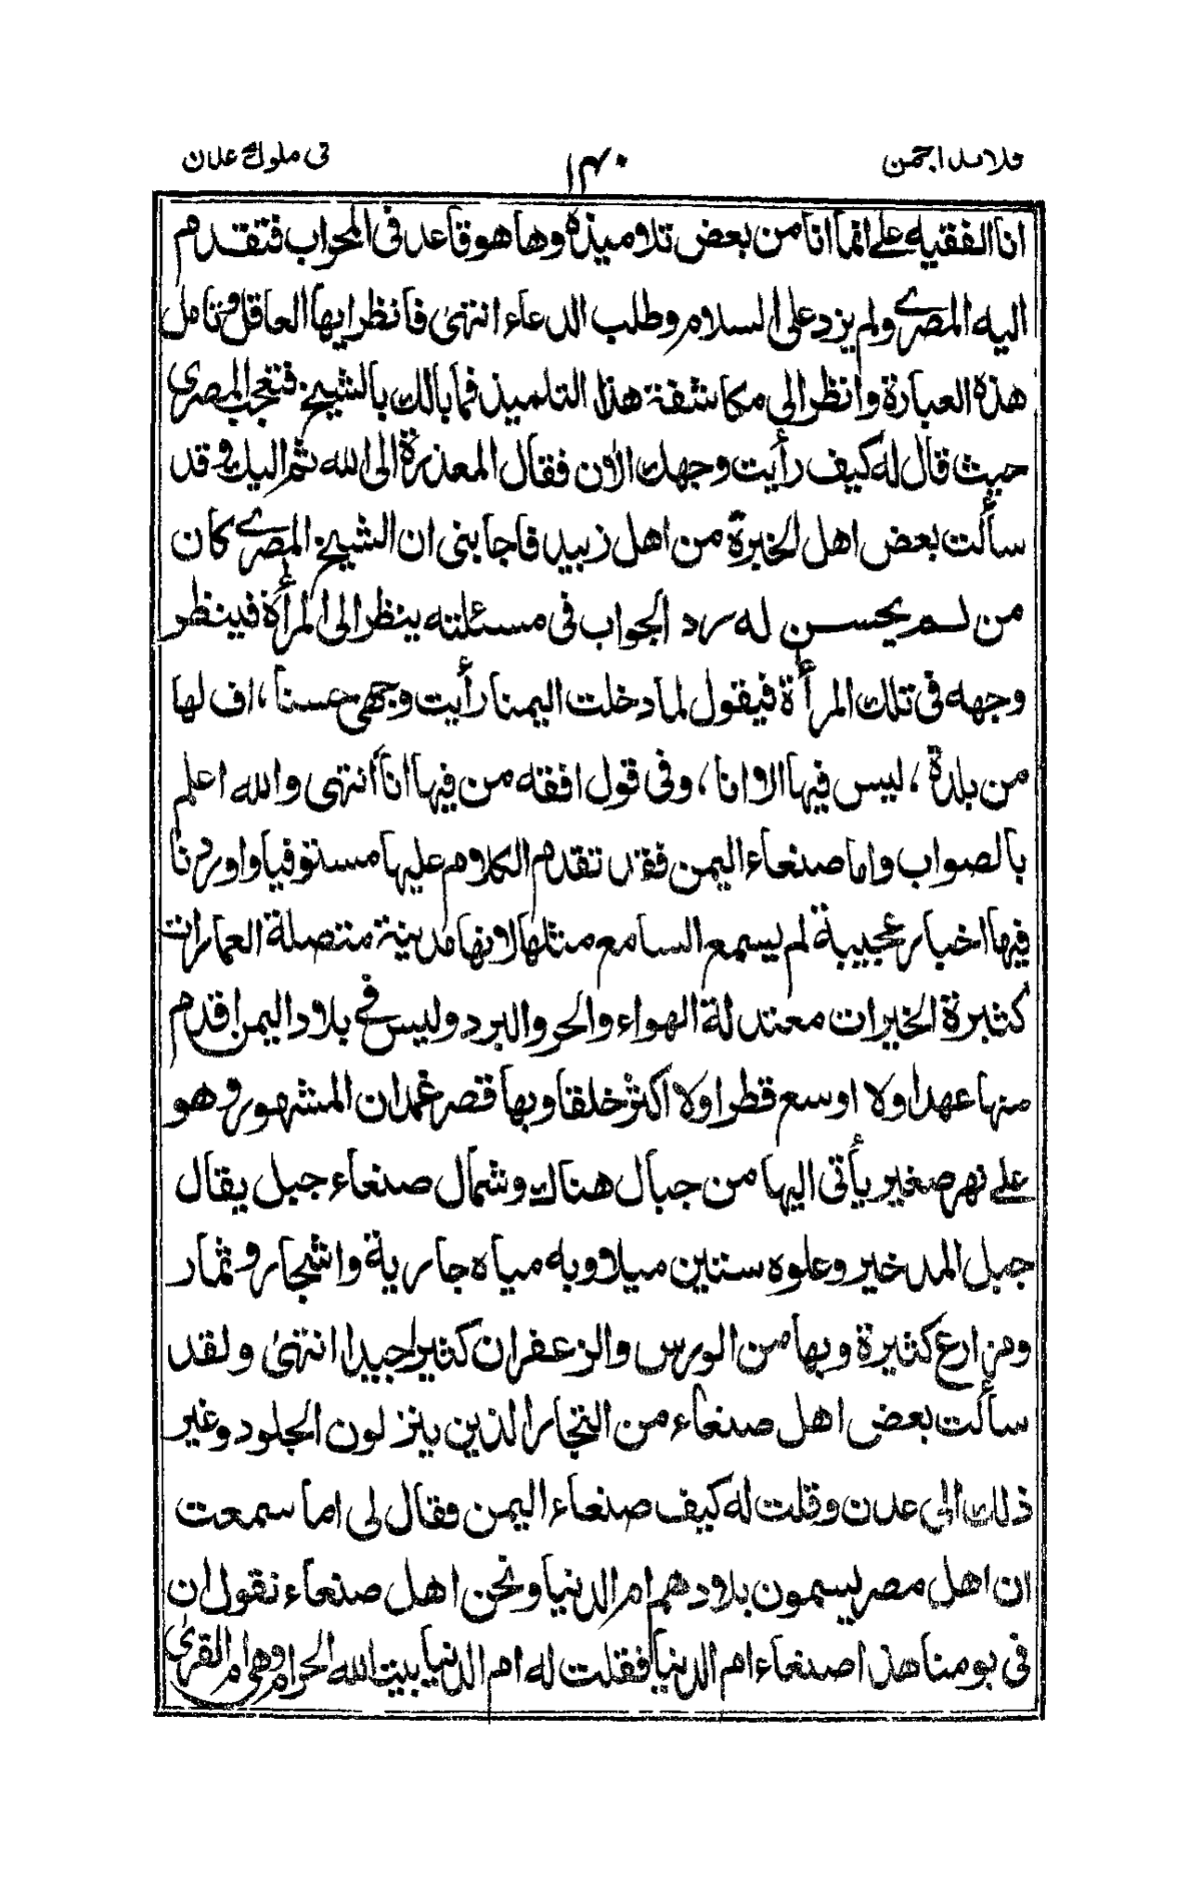 قلائد الجمن
١٣٠
فى ملوك عدن
انا الفقيه على انما انا من بعض تلاميذه وها هو قاعد فى المحراب فتقدم
اليه المصرى ولم يزد على السلام وطلب الدعاء انتهى فانظر ايها العاقل وتامل
هذه العبارة وانظر الى مكاشفة هذا التلميذ فما بالك بالشيخ فتعجب المصرى
حيث قال له كيف رأيت وجهك الان فقال المعذرة الى الله ثم اليك وقد
سألت بعض اهل الخبرة من اهل زبيد فاجابنى ان الشيخ المصرى كان
من لم يحسن له رد الجواب فى مسئلته ينظر الى المرأة فينظر
وجهه فى تلك المرأة فيقول لما دخلت اليمنا رأيت وجهى حسنا ، اف لها
من بلدة ، ليس فيها الا انا ، وفى قول افقه من فيها انا انتهى والله اعلم
بالصواب واما صنعاء اليمن فقد تقدم الكلام عليها مستوفيا واوردنا
فيها اخبار عجيبة لم يسمع السامع مثلها لانها مدينة متصلة العمارات
كثيرة الخيرات معتدلة الهواء والحر والبرد وليس فى بلاد اليمن اقدم
منها عهدا ولا اوسع قطرا ولا اكثر خلقا وبها قصر غمدان المشهور وهو
على نهر صغير يأتى اليها من جبال هناك وشمال صنعاء جبل يقال
جبل المدخير وعلوه ستين ميلا وبه مياه جارية واشجار وثمار
ومزارع كثيرة وبها من الورس والزعفران كثيرا جيدا انتهى ولقد
سألت بعض اهل صنعاء من التجار الذين ينزلون الجلود وغير
ذلك الى عدن وقلت له كيف صنعاء اليمن فقال لى اما سمعت
ان اهل مصر يسمون بلادهم ام الدنيا ونحن اهل صنعاء نقول ان
فى يومنا هذا صنعاء ام الدنيا فقلت له ام الدنيا بيت الله الحرام وهى ام القرى